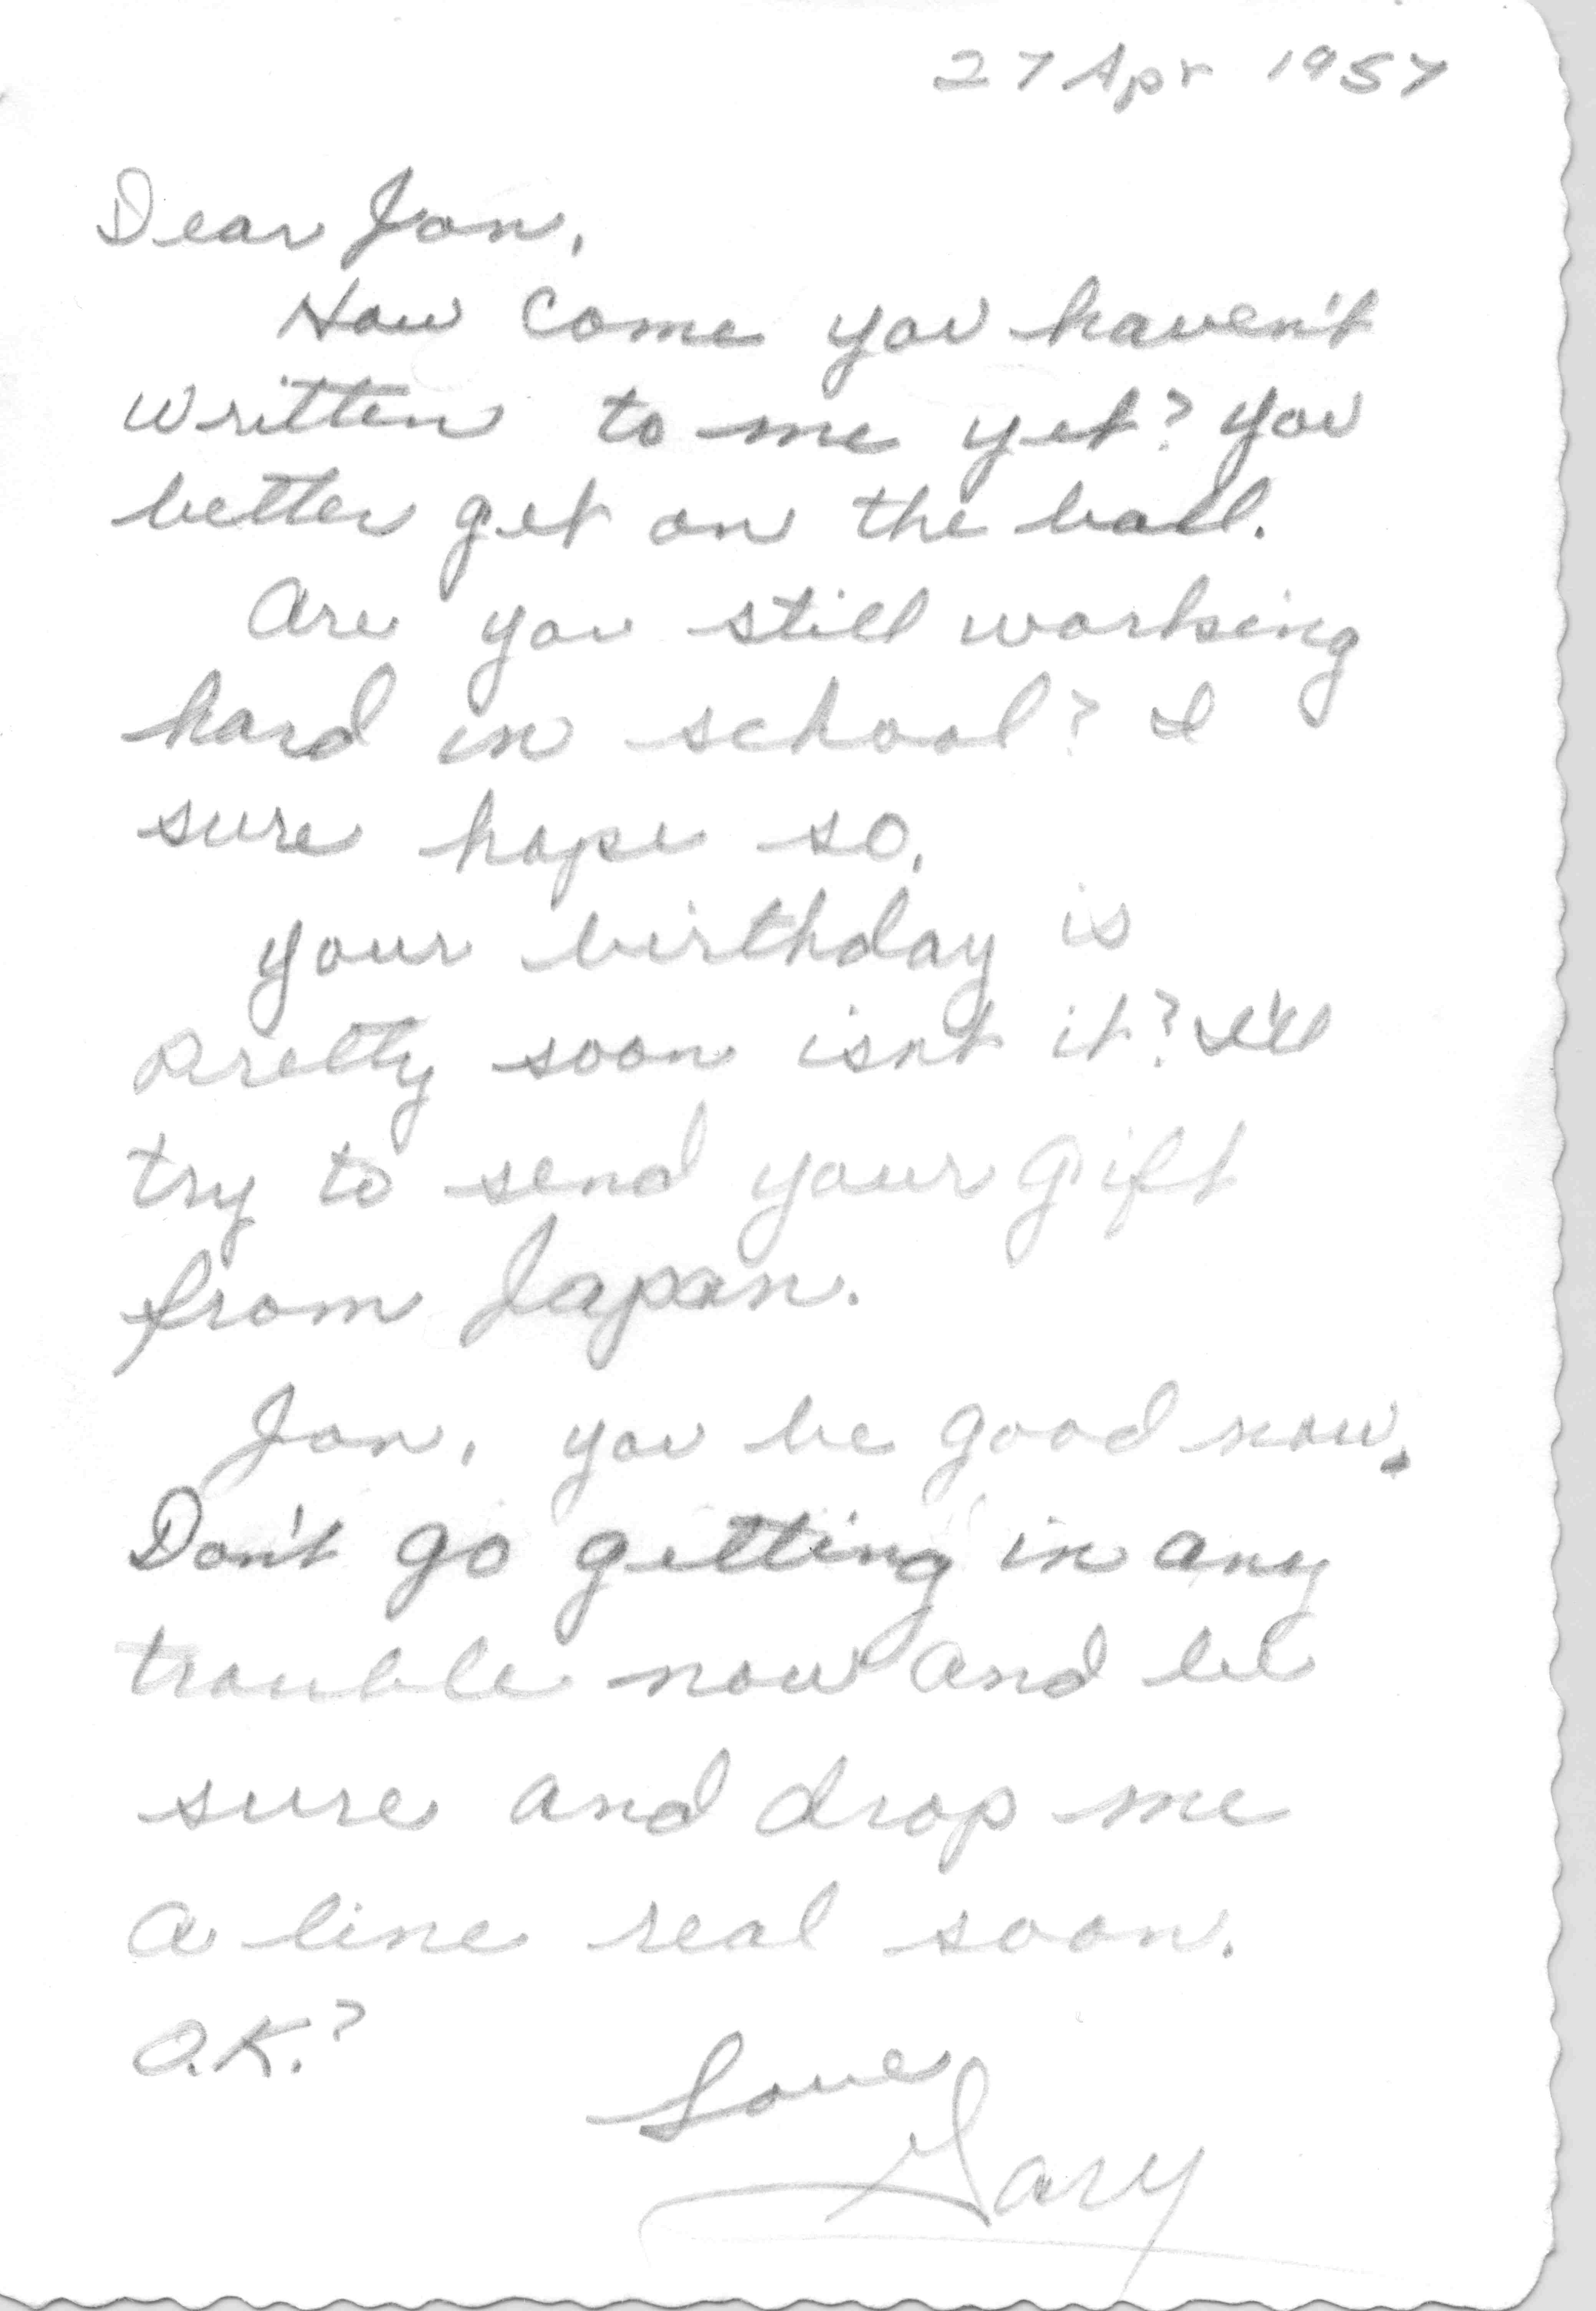 27 Apr 1957
Dear Jon,
How come you haven't
written to me yet? You
better get on the ball.
Are you still working
hard in school? I
sure hope so.
Your birthday is
pretty soon isnt it? I'll
try to send your gift
from Japan.
Jon, you be good now.
Don't go getting in any
trouble now and be
sure and drop me
a line real soon.
O.K.?
Love
Gary